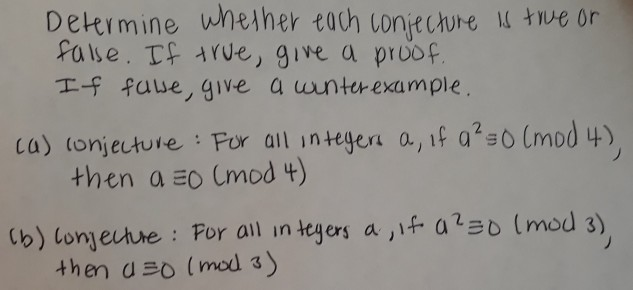 Determine whether each conjecture is true or
false. If true, give a proof.
If false, give a counterexample.
(a) Conjecture : For all integers a, if a² ≡ 0 (mod 4),
then a ≡ 0 (mod 4)
(b) Conjecture : For all integers a, if a² ≡ 0 (mod 3),
then a ≡ 0 (mod 3)